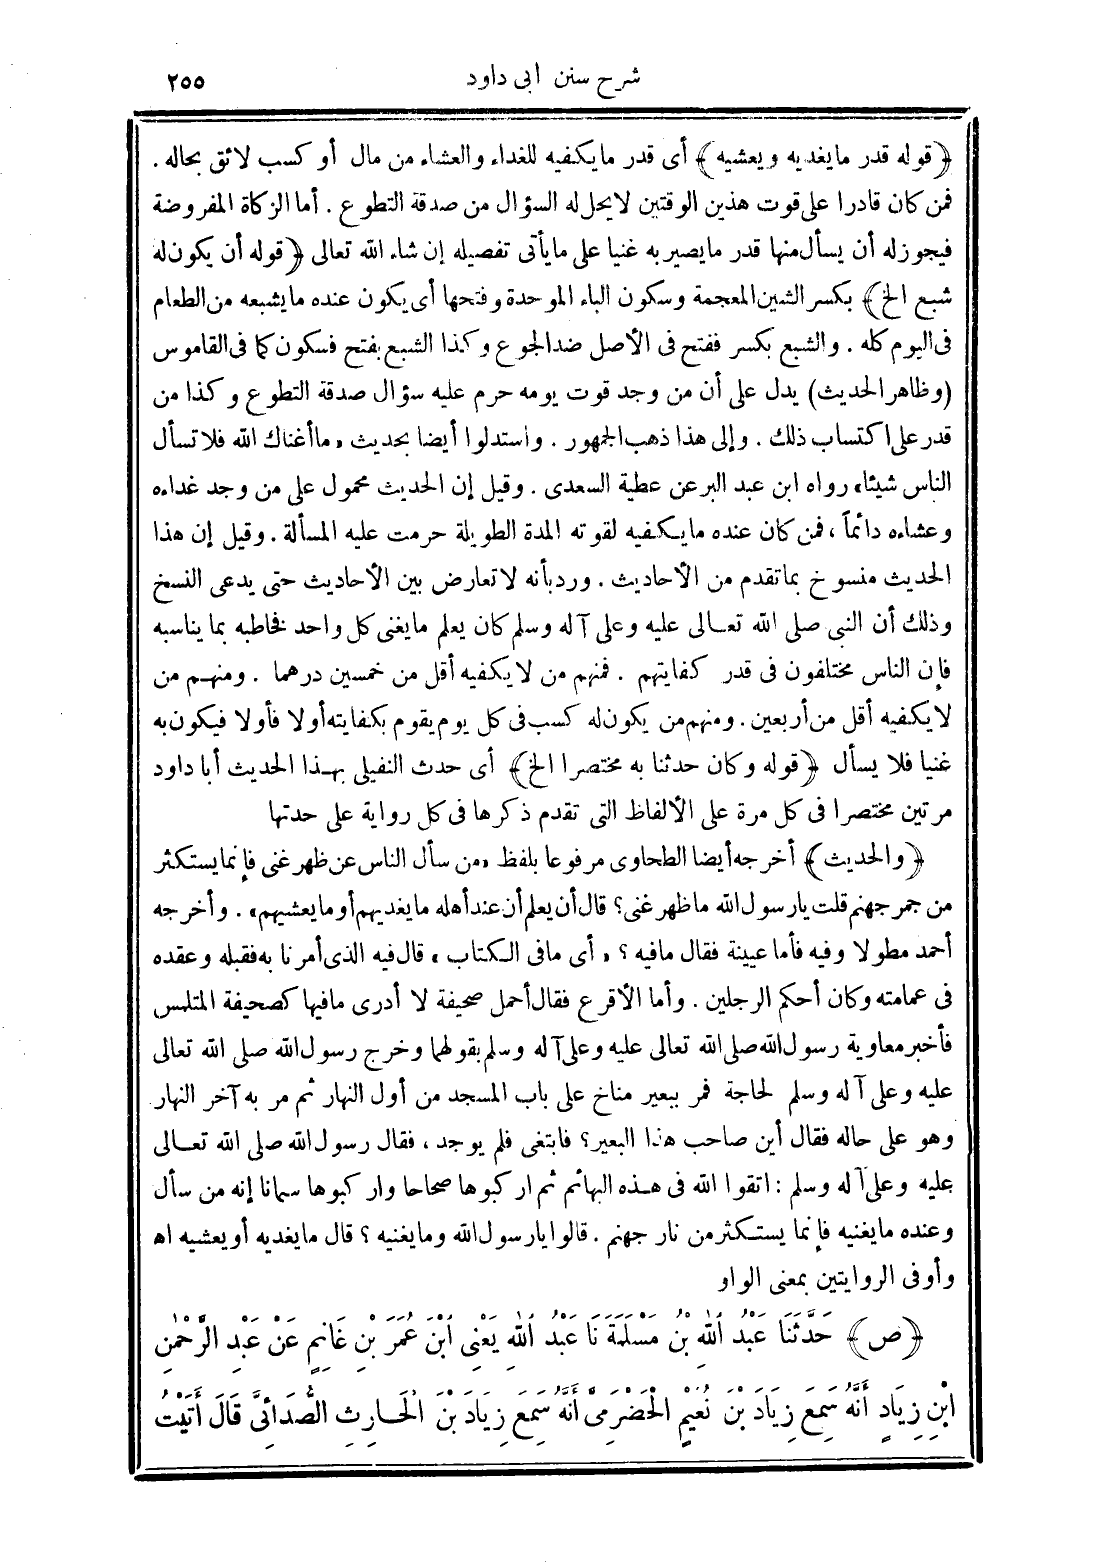 شرح سنن أبى داود ٢٥٥
﴿قوله قدر ما يغديه ويعشيه﴾ أى قدر ما يكفيه للغداء والعشاء من مال أو كسب لائق بحاله .
فمن كان قادرا على قوت هذين الوقتين لا يحل له السؤال من صدقة التطوع . أما الزكاة المفروضة
فيجوز له أن يسأل منها قدر ما يصير به غنيا على ما يأتى تفصيله إن شاء الله تعالى ﴿قوله أن يكون له
شبع الخ﴾ بكسر الشين المعجمة وسكون الباء الموحدة وفتحها أى يكون عنده ما يشبعه من الطعام
فى اليوم كله . والشبع بكسر ففتح فى الأصل ضد الجوع وكذا الشبع بفتح فسكون كما فى القاموس
(وظاهر الحديث) يدل على أن من وجد قوت يومه حرم عليه سؤال صدقة التطوع وكذا من
قدر على اكتساب ذلك . وإلى هذا ذهب الجمهور . واستدلوا أيضا بحديث «ما أغناك الله فلا تسأل
الناس شيئا» رواه ابن عبد البر عن عطية السعدى . وقيل إن الحديث محمول على من وجد غداءه
وعشاءه دائماً ، فمن كان عنده ما يكفيه لقوته المدة الطويلة حرمت عليه المسألة . وقيل إن هذا
الحديث منسوخ بما تقدم من الأحاديث . ورد بأنه لا تعارض بين الأحاديث حتى يدعى النسخ
وذلك أن النبى صلى الله تعالى عليه وعلى آله وسلم كان يعلم ما يغنى كل واحد فخاطبه بما يناسبه
فإن الناس مختلفون فى قدر كفايتهم . فمنهم من لا يكفيه أقل من خمسين درهما . ومنهم من
لا يكفيه أقل من أربعين . ومنهم من يكون له كسب فى كل يوم يقوم بكفايته أولا فأولا فيكون به
غنيا فلا يسأل ﴿قوله وكان حدثنا به مختصرا الخ﴾ أى حدث النفيلى بهذا الحديث أبا داود
مرتين مختصرا فى كل مرة على الألفاظ التى تقدم ذكرها فى كل رواية على حدتها
﴿والحديث﴾ أخرجه أيضا الطحاوى مرفوعا بلفظ «من سأل الناس عن ظهر غنى فإنما يستكثر
من جمر جهنم قلت يا رسول الله ما ظهر غنى؟ قال أن يعلم أن عند أهله ما يغديهم أو ما يعشيهم» . وأخرجه
أحمد مطولا وفيه فأما عيينة فقال ما فيه ؟ «أى ما فى الكتاب» قال فيه الذى أمرنا به فقبله وعقده
فى عمامته وكان أحكم الرجلين . وأما الأقرع فقال أحمل صحيفة لا أدرى ما فيها كصحيفة المتلمس
فأخبر معاوية رسول الله صلى الله تعالى عليه وعلى آله وسلم بقولهما وخرج رسول الله صلى الله تعالى
عليه وعلى آله وسلم لحاجة فمر ببعير مناخ على باب المسجد من أول النهار ثم مر به آخر النهار
وهو على حاله فقال أين صاحب هذا البعير؟ فابتغى فلم يوجد ، فقال رسول الله صلى الله تعالى
عليه وعلى آله وسلم : اتقوا الله فى هذه البهائم ثم اركبوها صحاحا واركبوها سمانا إنه من سأل
وعنده ما يغنيه فإنما يستكثر من نار جهنم . قالوا يا رسول الله وما يغنيه ؟ قال ما يغديه أو يعشيه اه
وأو فى الروايتين بمعنى الواو
﴿ص﴾ حَدَّثَنَا عَبْدُ اللهِ بْنُ مَسْلَمَةَ نَا عَبْدُ اللهِ يَعْنِى ابْنَ عُمَرَ بْنِ غَانِمٍ عَنْ عَبْدِ الرَّحْمٰنِ
ابْنِ زِيَادٍ أَنَّهُ سَمِعَ زِيَادَ بْنَ نُعَيْمٍ الْحَضْرَمِىَّ أَنَّهُ سَمِعَ زِيَادَ بْنَ الْحَارِثِ الصُّدَائِىَّ قَالَ أَتَيْتُ